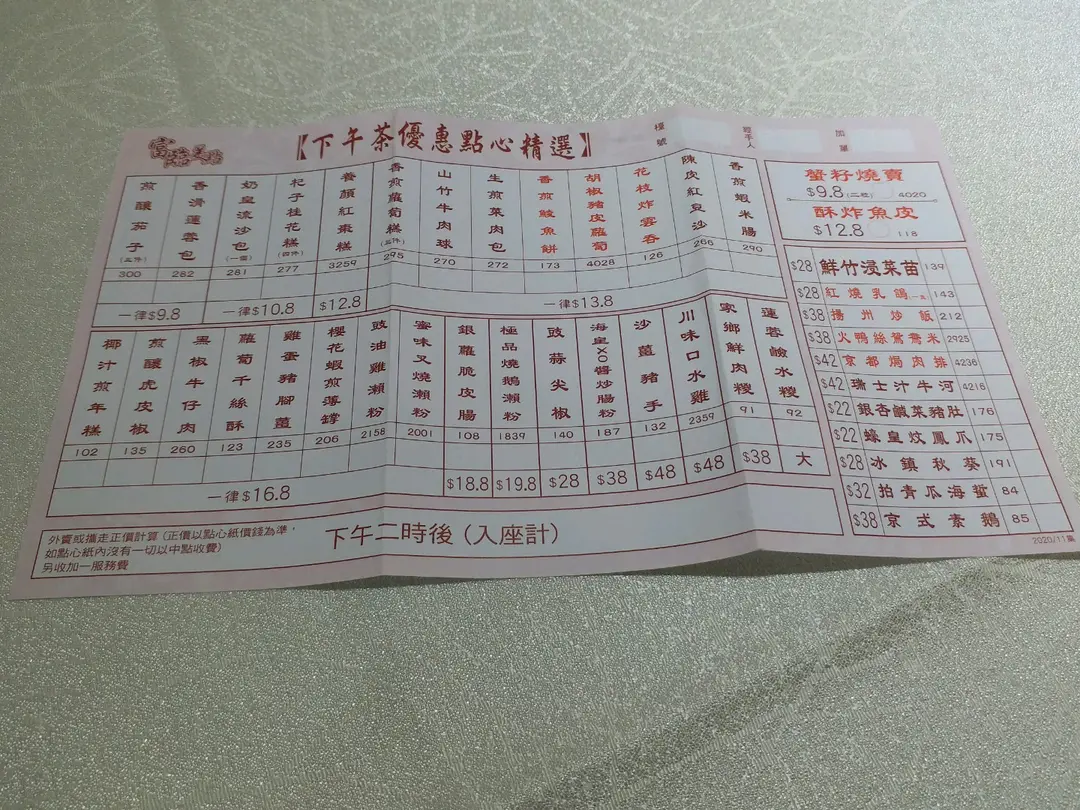 富臨皇宮
【下午茶優惠點心精選】
檯號
經手人
加單
煎釀茄子(三件) 300
香滑蓮蓉包 282
奶皇流沙包(一個) 281
杞子桂花糕(四件) 277
養顏紅棗糕 3259
香煎蘿蔔糕(三件) 295
山竹牛肉球 270
生煎菜肉包 272
香煎鯪魚餅 173
胡椒豬皮蘿蔔 4028
花枝炸雲吞 126
陳皮紅豆沙 266
香煎蝦米腸 290
一律$9.8
一律$10.8
$12.8
一律$13.8
椰汁煎年糕 102
煎釀虎皮椒 135
黑椒牛仔肉 260
蘿蔔千絲酥 123
雞蛋豬腳薑 235
櫻花蝦煎薄罉 206
豉油雞瀨粉 2158
蜜味叉燒瀨粉 2001
銀蘿脆皮腸 108
極品燒鵝瀨粉 1839
豉蒜尖椒 140
海皇XO醬炒腸粉 187
沙薑豬手 132
川味口水雞 2359
家鄉鮮肉糭 91
蓮蓉鹼水糭 92
一律$16.8
$18.8
$19.8
$28
$38
$48
$48
$38
大
外賣或攜走正價計算(正價以點心紙價錢為準,
如點心紙內沒有一切以中點收費)
另收加一服務費
下午二時後(入座計)
蟹籽燒賣
$9.8(二粒) 4020
酥炸魚皮
$12.8 118
$28 鮮竹浸菜苗 139
$28 紅燒乳鴿 143
$38 揚州炒飯 212
$38 火鴨絲鴛鴦米 2925
$42 京都焗肉排 4236
$42 瑞士汁牛河 4216
$22 銀杏鹹菜豬肚 176
$22 蠔皇炆鳳爪 175
$28 冰鎮秋葵 191
$32 拍青瓜海蜇 84
$38 京式素鵝 85
2020/11黃